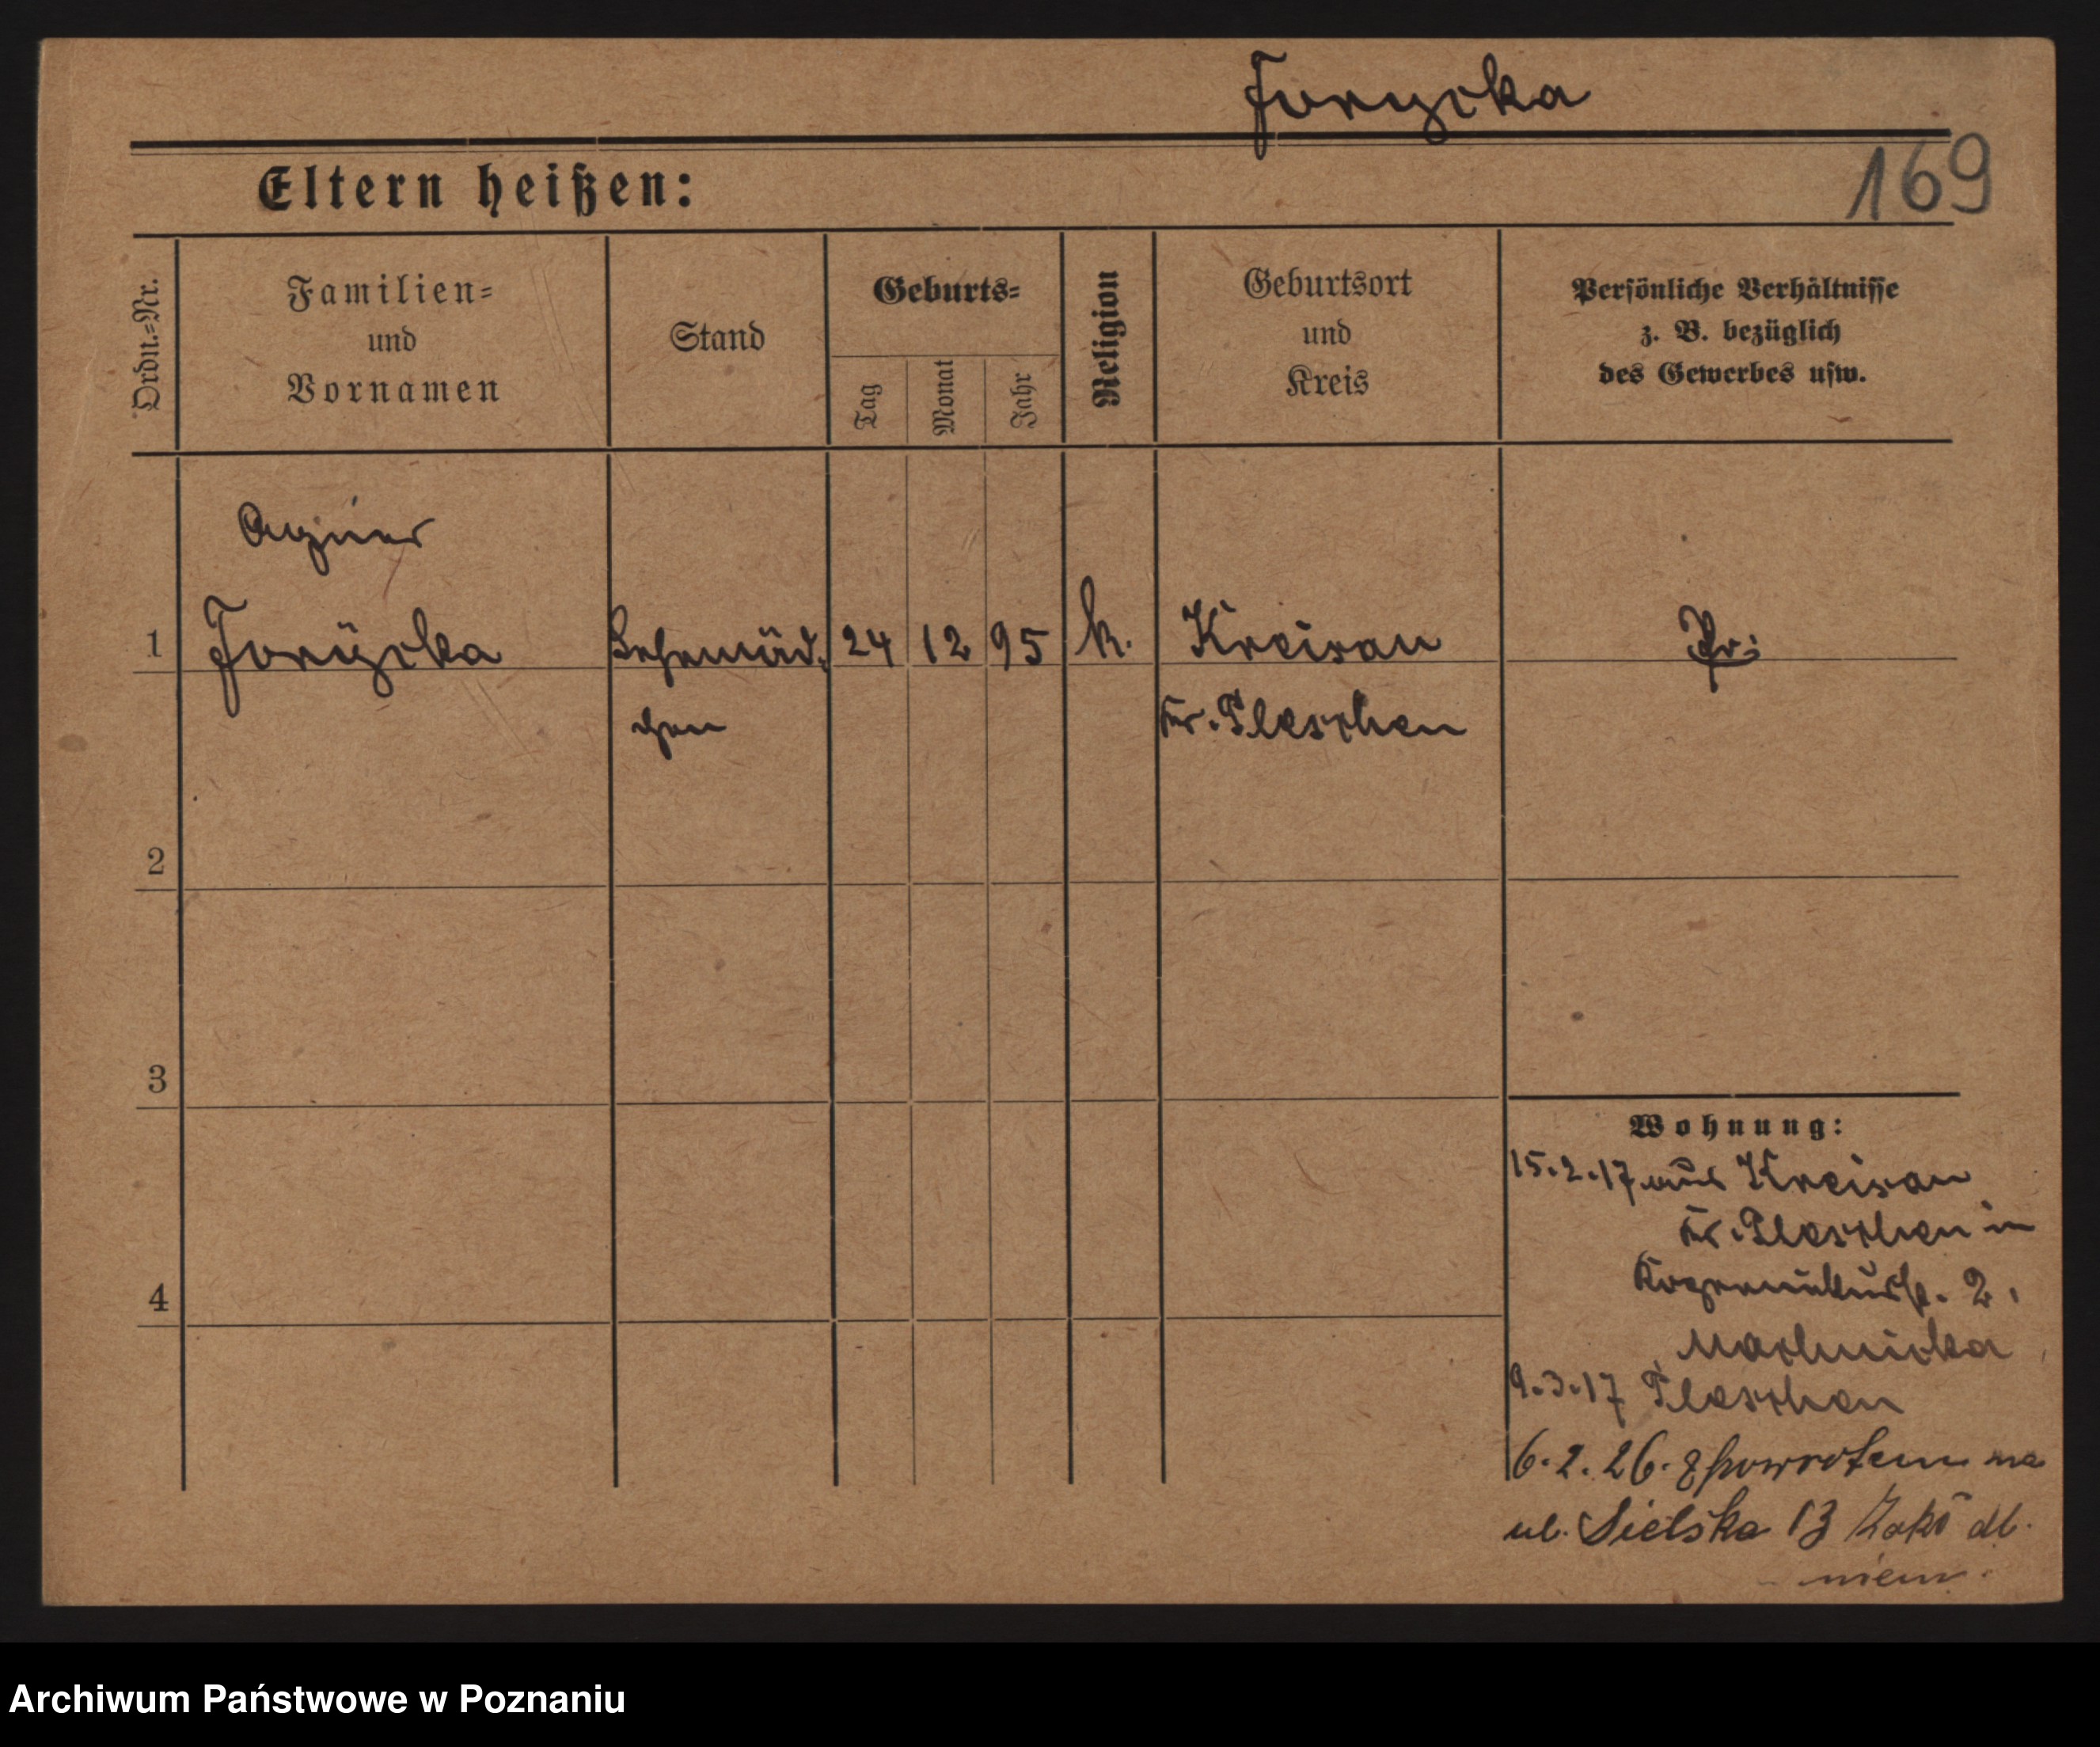 Jorycka
169
Eltern heißen:
Ordn.=Nr.
Familien=
und
Vornamen
Stand
Geburts=
Tag
Monat
Jahr
Religion
Geburtsort
und
Kreis
Persönliche Verhältnisse
z. B. bezüglich
des Gewerbes usw.
1
24 12 95 k.
Pr:
Kr. Pleschen
2
3
4
Wohnung:
15.2.17 aus
Kr. Pleschen in
2.
9.3.17 Pleschen
6.2.26. z powrotem na
ul. Sielska 13
niem.
Archiwum Państwowe w Poznaniu